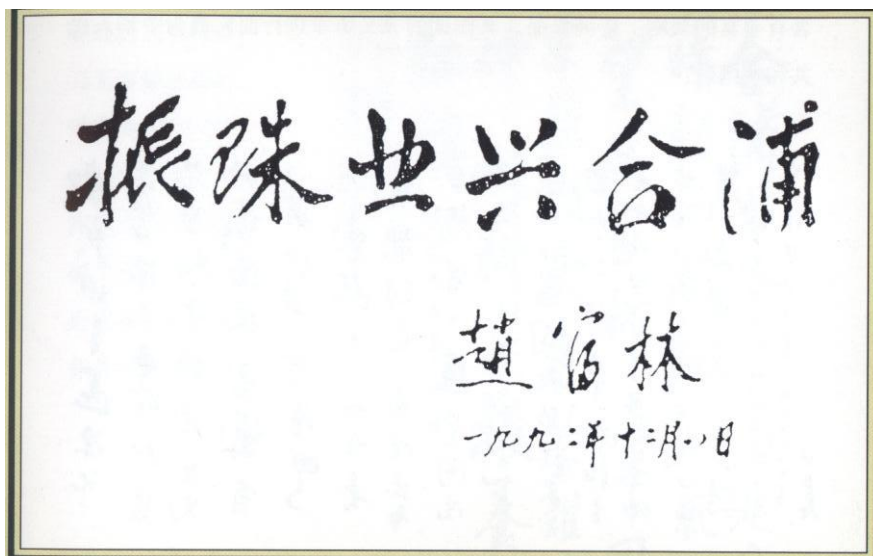 振珠业兴合浦
趙富林
一九九二年十二月八日